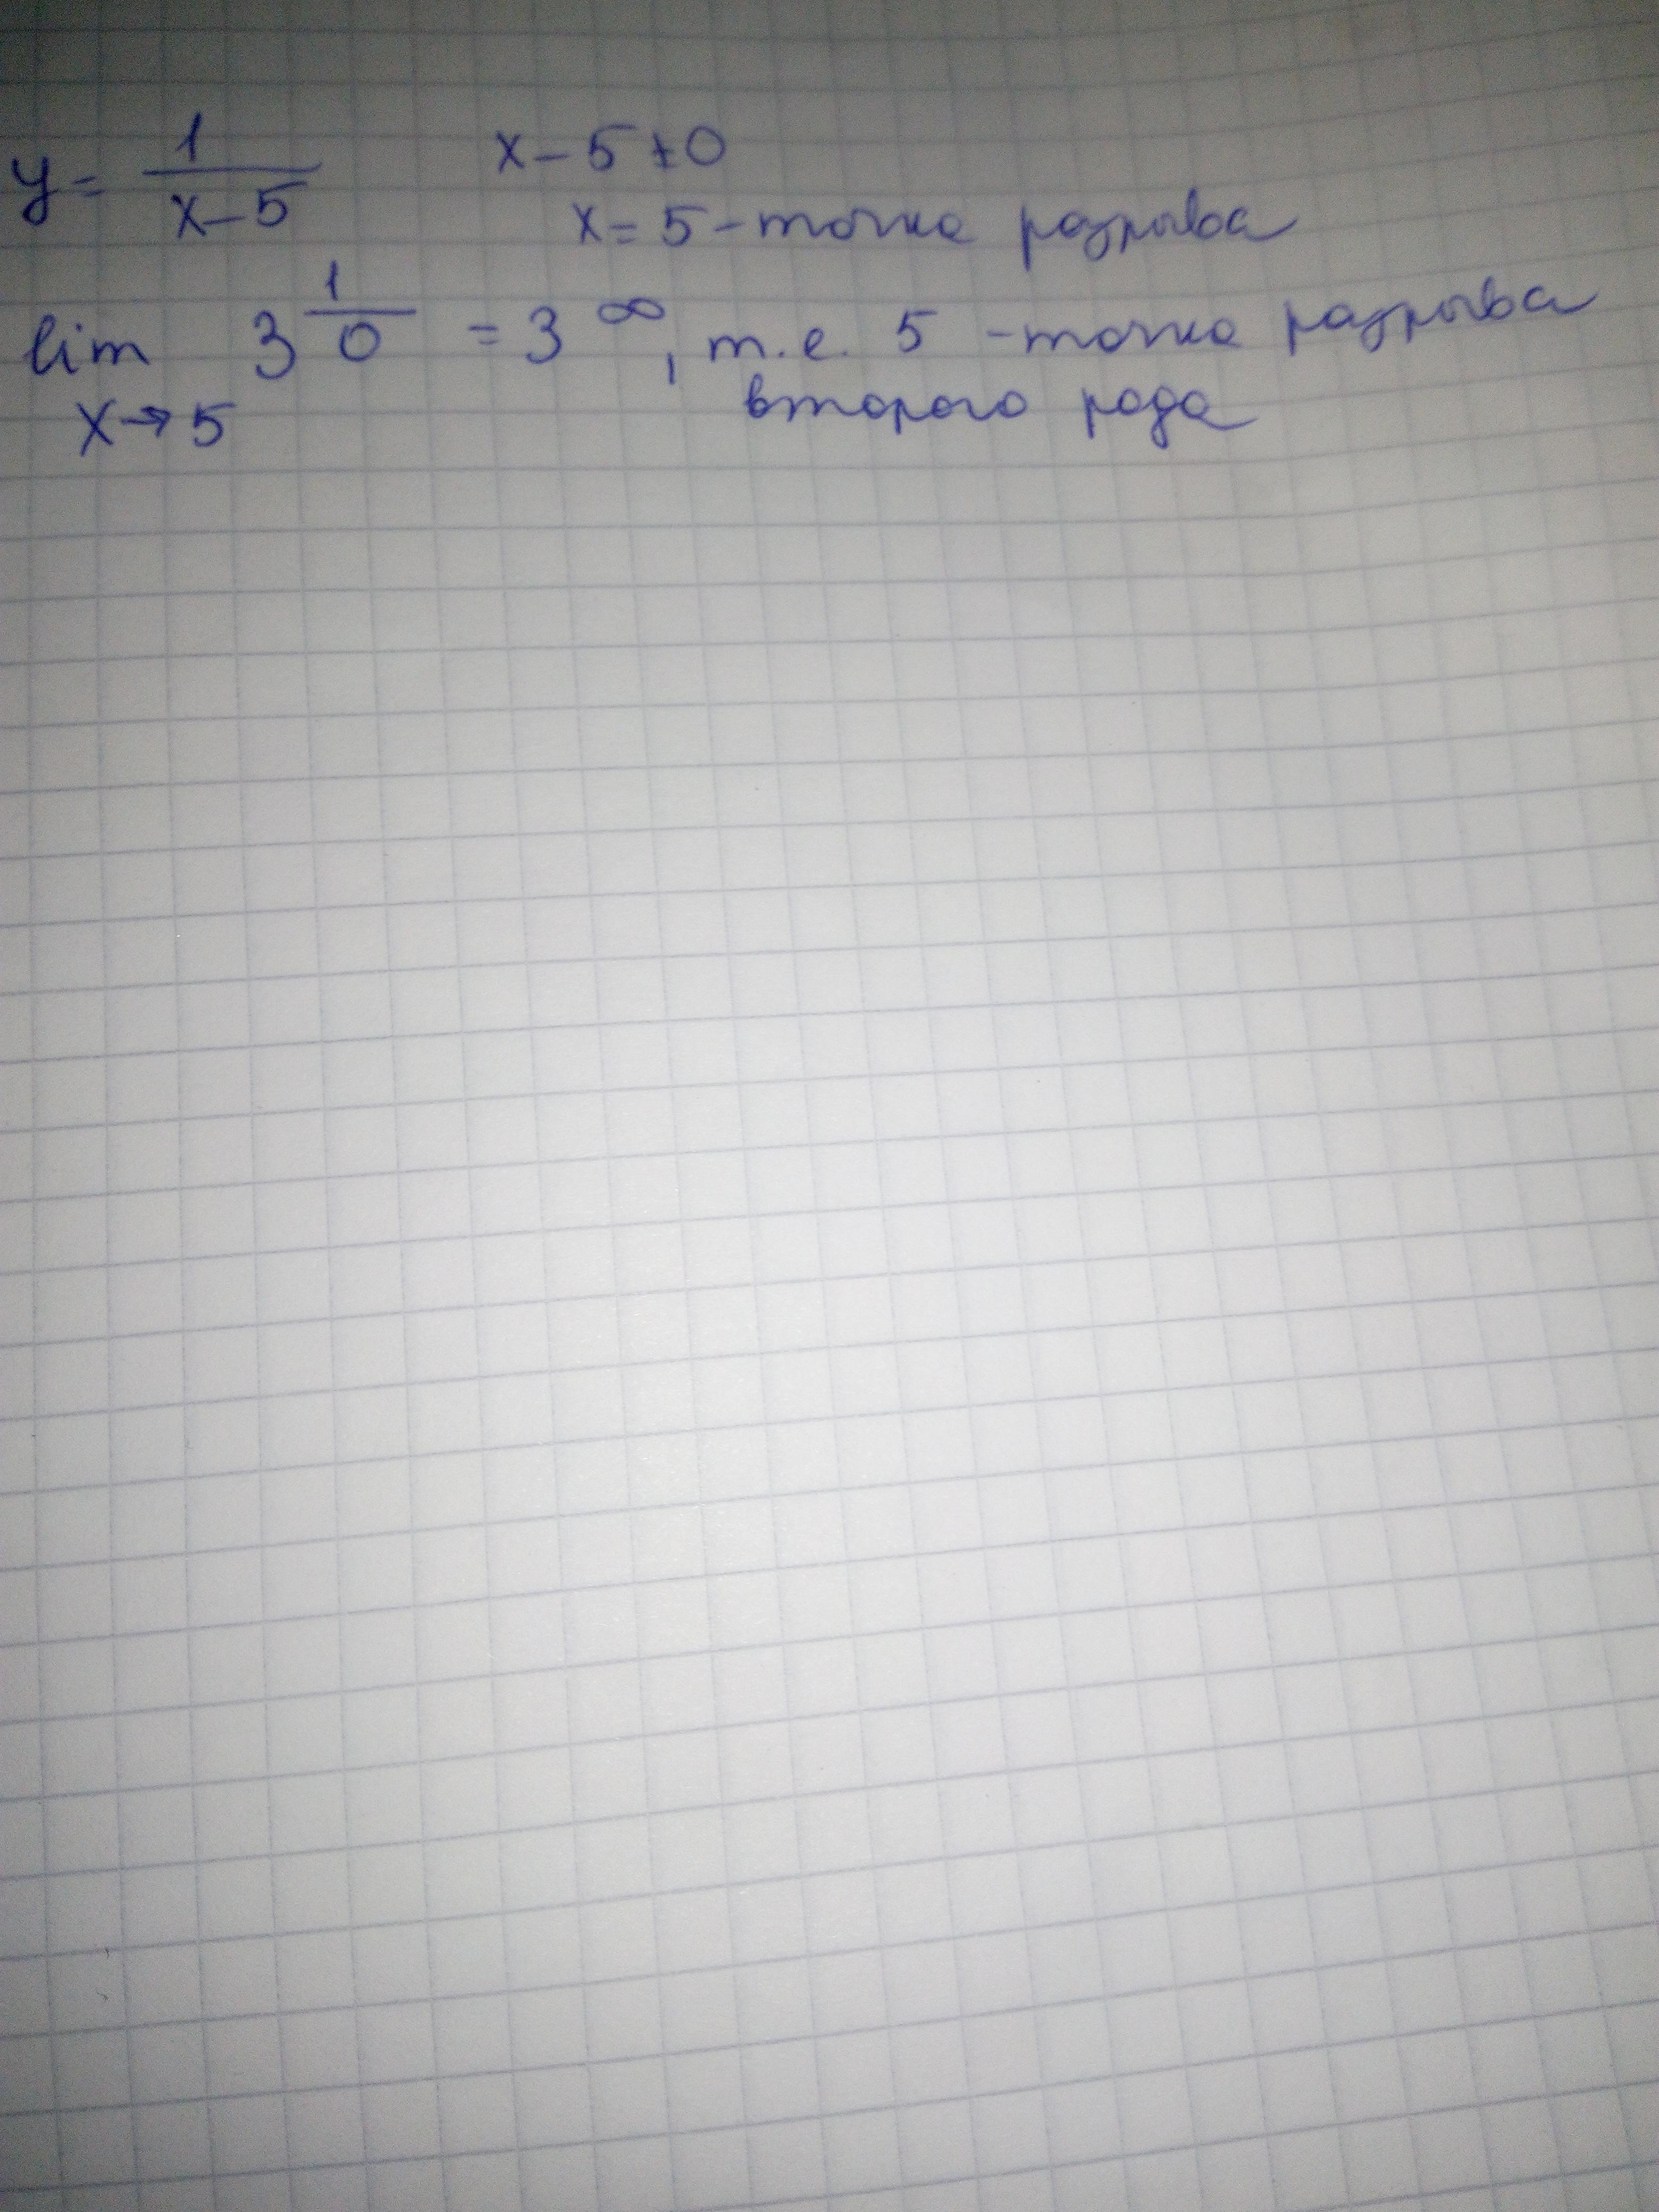 y = 1/(x-5) x-5≠0
x=5 - точка разрыва
lim x→5 3^(1/0) = 3^∞, т.е. 5 - точка разрыва
второго рода